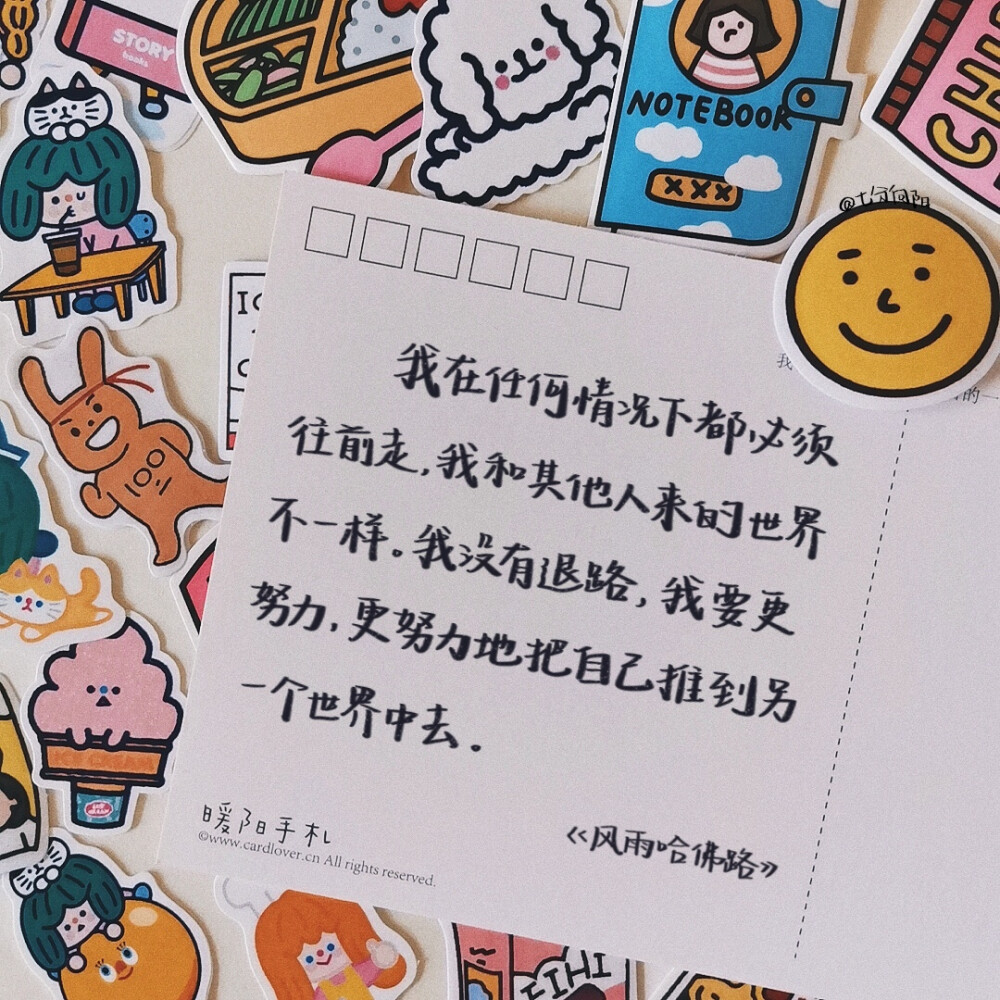 STORY
books
NOTEBOOK
XXX
CHI
@七分向阳
IC
我
的一
我在任何情况下都必须
往前走，我和其他人来的世界
不一样。我没有退路，我要更
努力，更努力地把自己推到另
一个世界中去.
《风雨哈佛路》
暖阳手札
©www.cardlover.cn All rights reserved.
ICE CREAM